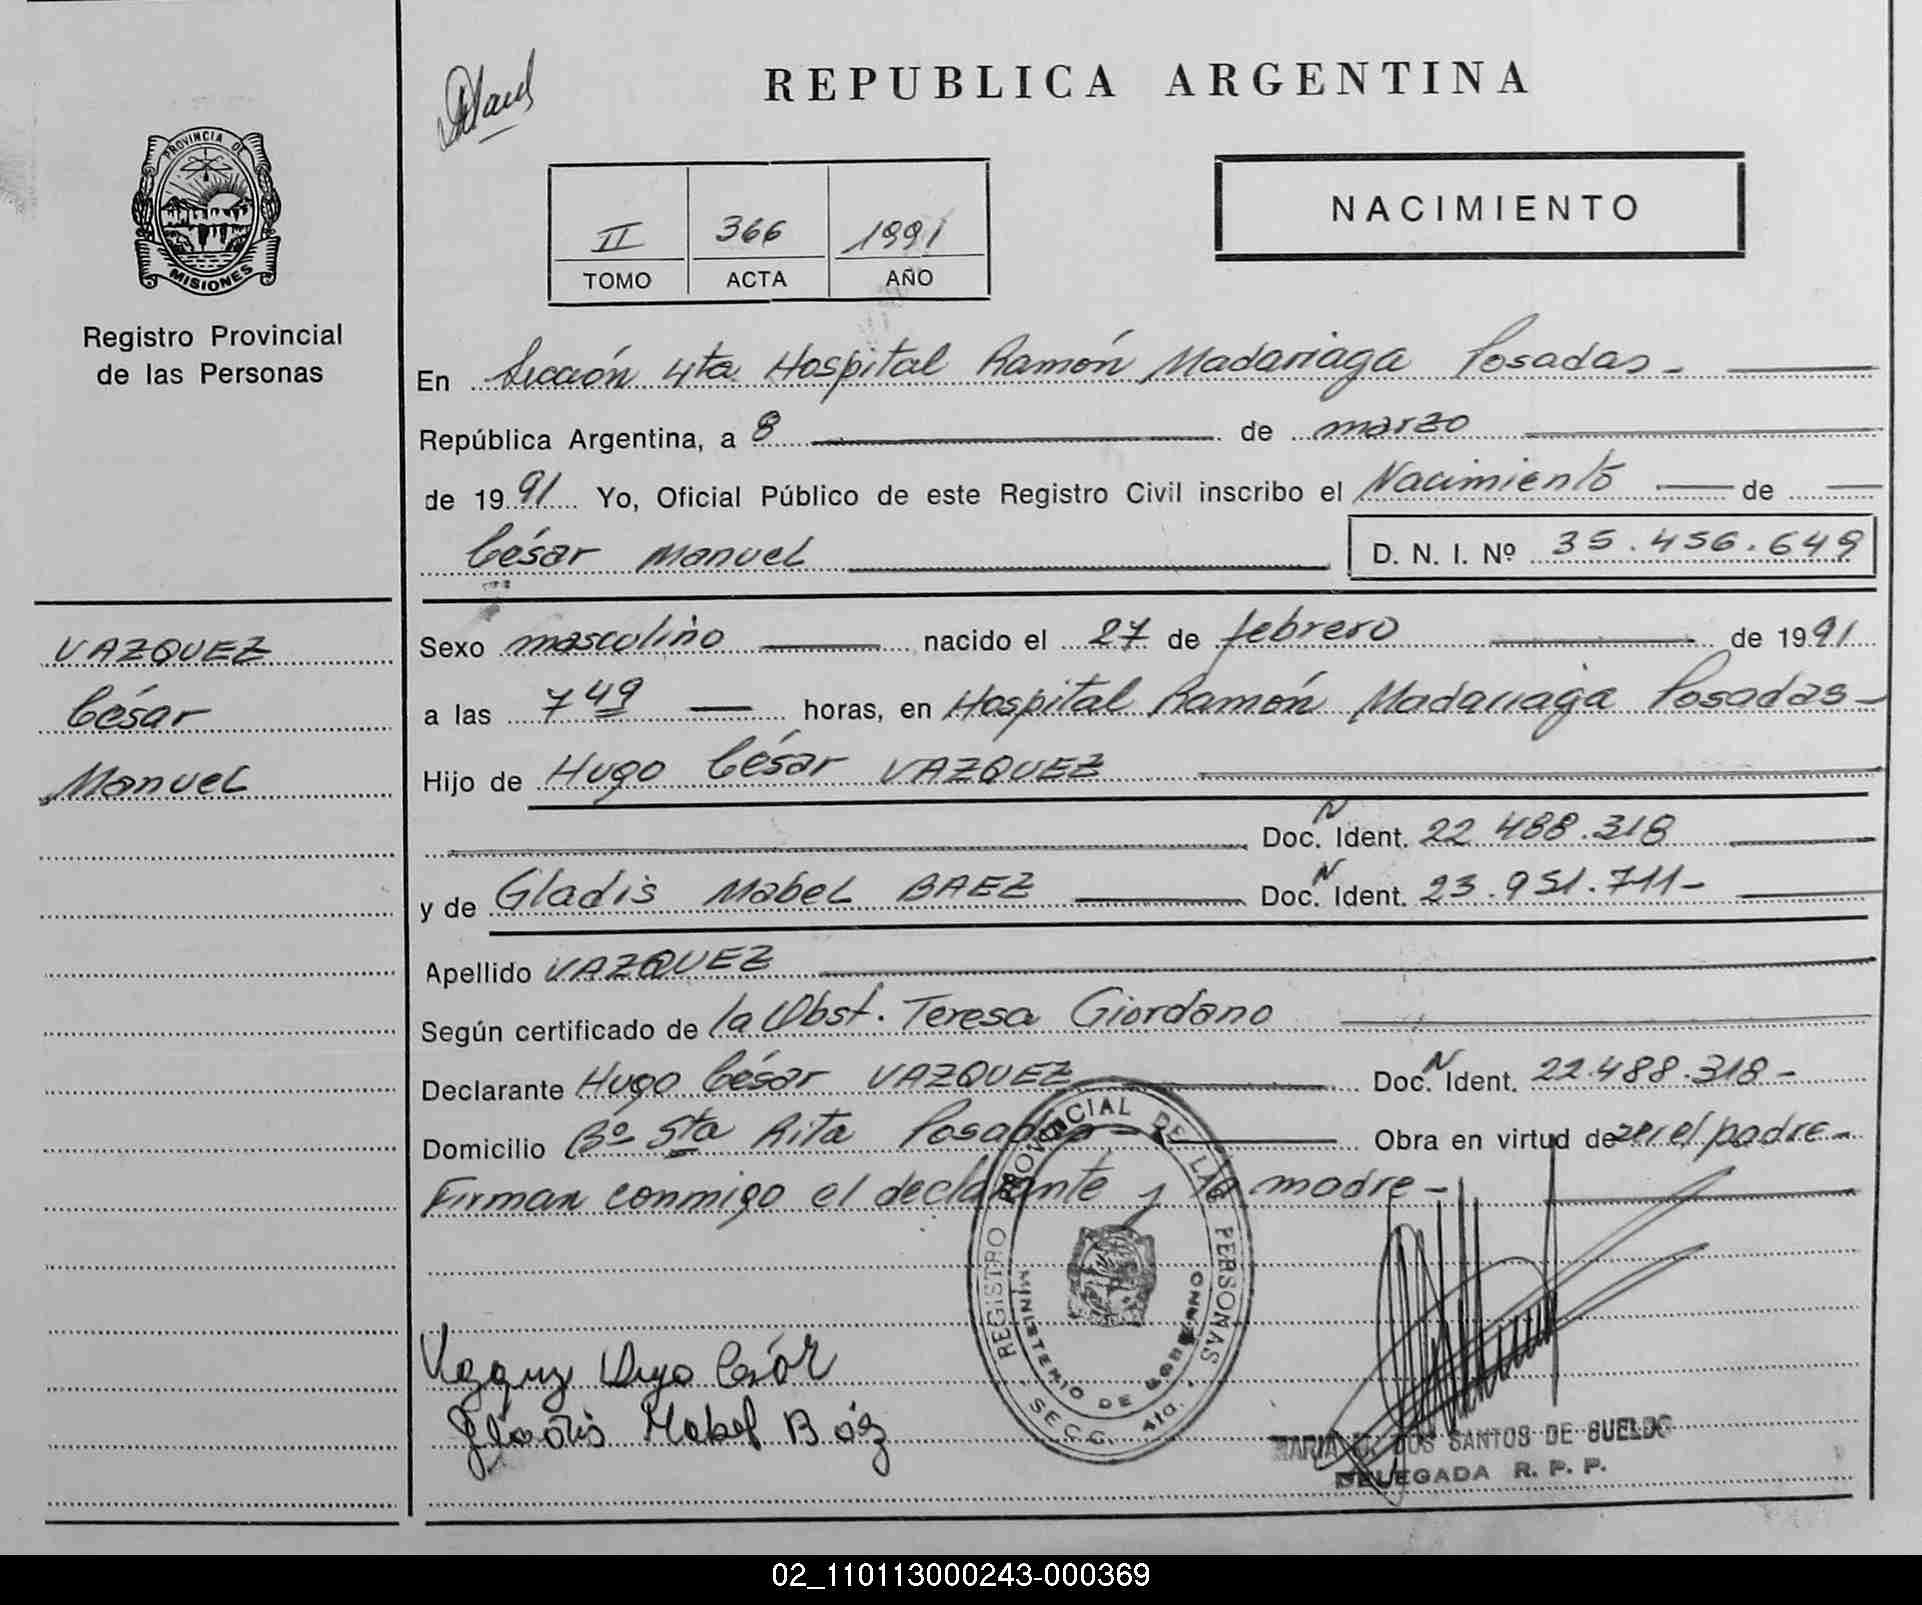 REPUBLICA ARGENTINA
PROVINCIA DE
MISIONES
Registro Provincial
de las Personas
II 366 1991
TOMO ACTA AÑO
NACIMIENTO
En Sección 4ta Hospital Ramón Madariaga Posadas -
República Argentina, a 8 de marzo
de 1991 Yo, Oficial Público de este Registro Civil inscribo el Nacimiento de
César Manuel D. N. I. Nº 35.456.649
VAZQUEZ
César
Manuel
Sexo masculino nacido el 27 de febrero de 1991
a las 7 49 horas, en Hospital Ramón Madariaga Posadas -
Hijo de Hugo César VAZQUEZ
Doc. N Ident. 22.488.318
y de Gladis Mabel BAEZ Doc. N Ident. 23.951.711-
Apellido VAZQUEZ
Según certificado de la Obst. Teresa Giordano
Declarante Hugo César VAZQUEZ Doc. N Ident. 22.488.318-
Domicilio Bº Sta Rita Posadas - Obra en virtud de ser el padre -
Firman conmigo el declarante y la madre -
REGISTRO PROVINCIAL DE LAS PERSONAS
MINISTERIO DE GOBIERNO
SECC. 4ta.
Vazquez Hugo César
Gladis Mabel Báez
MARIA DOS SANTOS DE SUELDO
DELEGADA R. P. P.
02_110113000243-000369